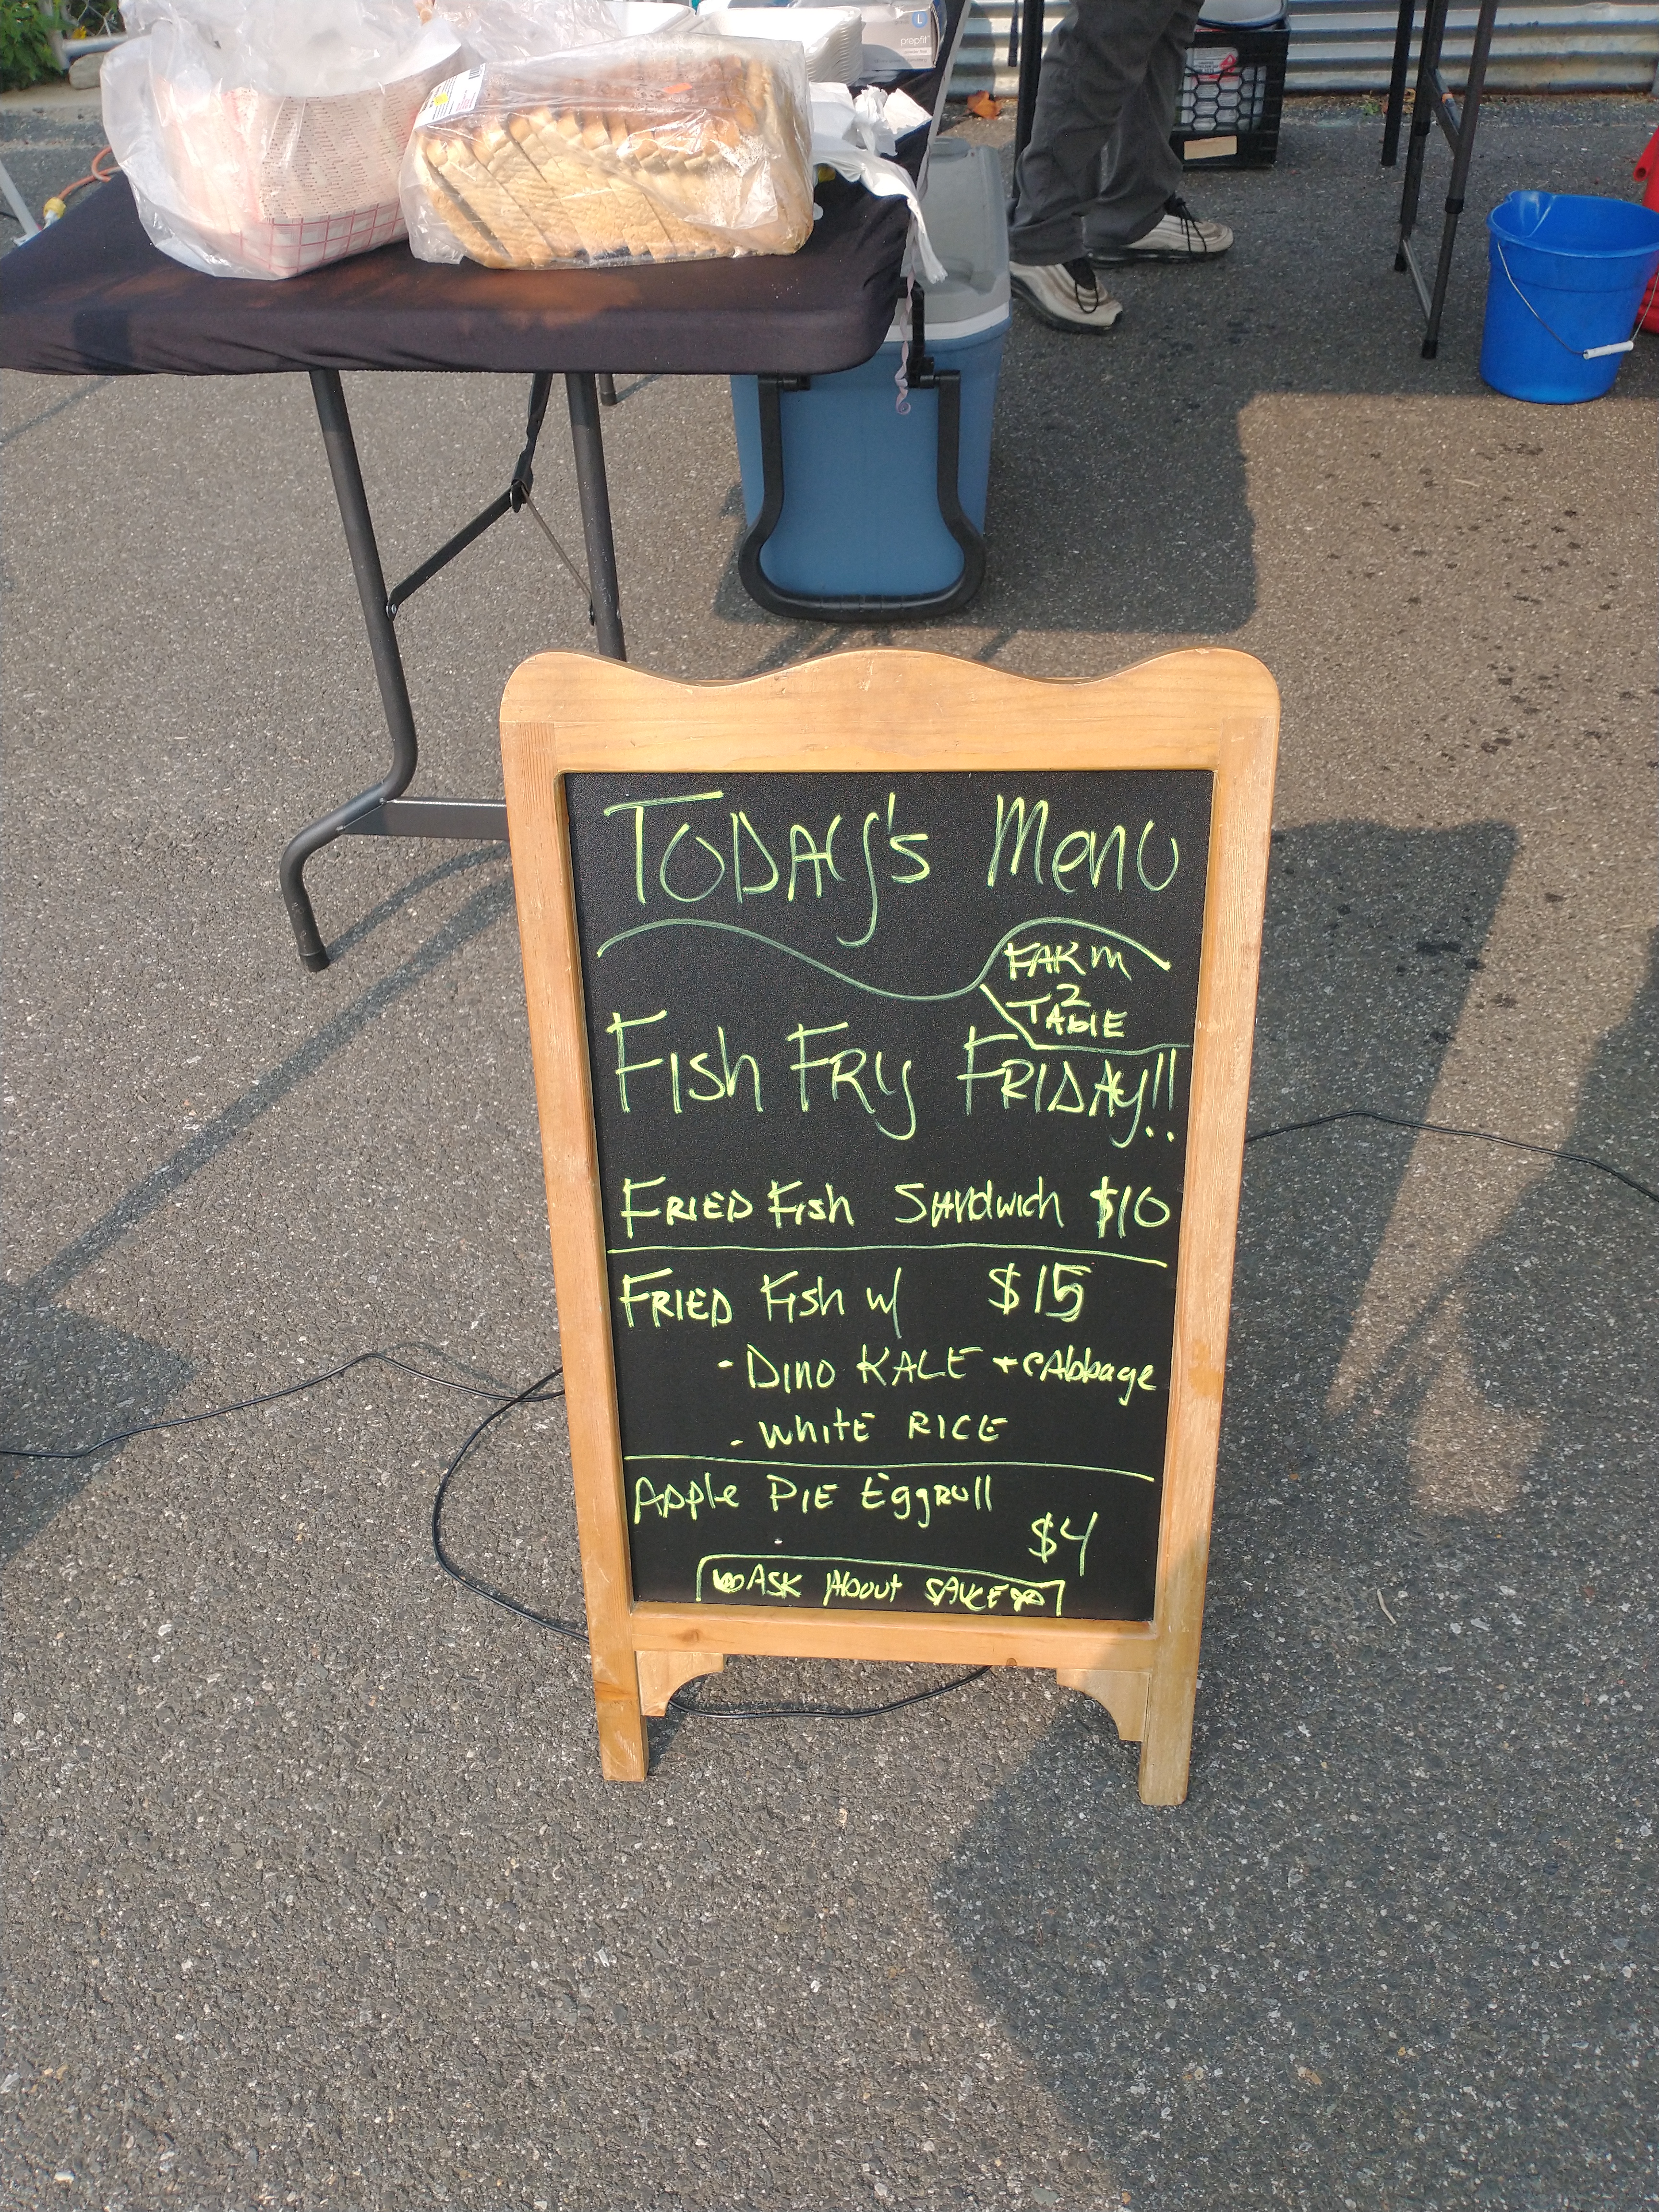 L
prepfit
TODAY's Menu
FARM
2
TABlE
FIsh FRy FRIDAy!!
FRIED FIsh SANdwich $10
FRIED FIsh w/ $15
- DINO KALE + cAbbage
- WhitE RICE
Apple PIE EggRoll
$4
ASK About SAUCE